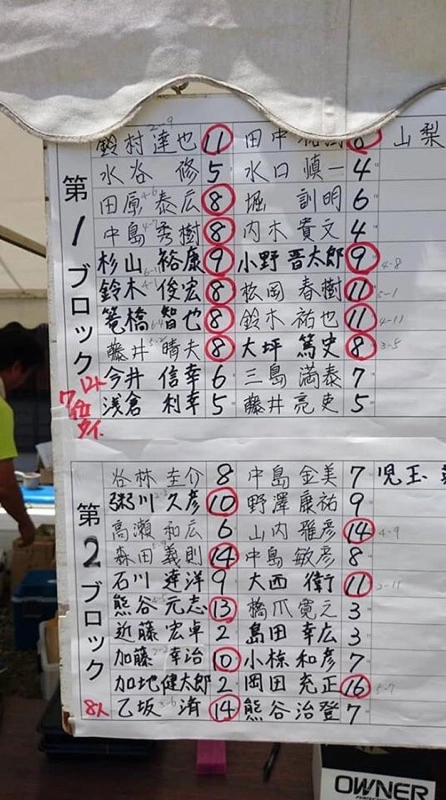 鈴村達也 11 田中
山梨
水谷 修 5 水口慎一 4
田原泰広 8 堀 訓明 6
中島秀樹 8 内木貴文 4
杉山裕康 9 小野晋太郎 9 4-8
鈴木俊宏 8 松岡春樹 11
篭橋智也 8 鈴木祐也 11 4-11
藤井晴夫 8 大坪篤史 8 3-5
今井信幸 6 三島満泰 7
浅倉利幸 5 藤井亮吏 5
第1ブロック
谷林圭介 8 中島金美 7 児玉
粥川久彦 10 野澤康祐 9
高瀬和広 6 山内雅彦 14 4-9
森田義則 14 中島敏彦 8
石川達洋 9 大西 衛 11 2-11
熊谷元志 13 橋爪寛之 3
近藤宏卓 2 島田幸広 3
加藤幸治 10 小椋和彦 7
加地健太郎 2 岡田充正 16
乙坂 淯 14 熊谷治登 7
第2ブロック
8人
OWNER